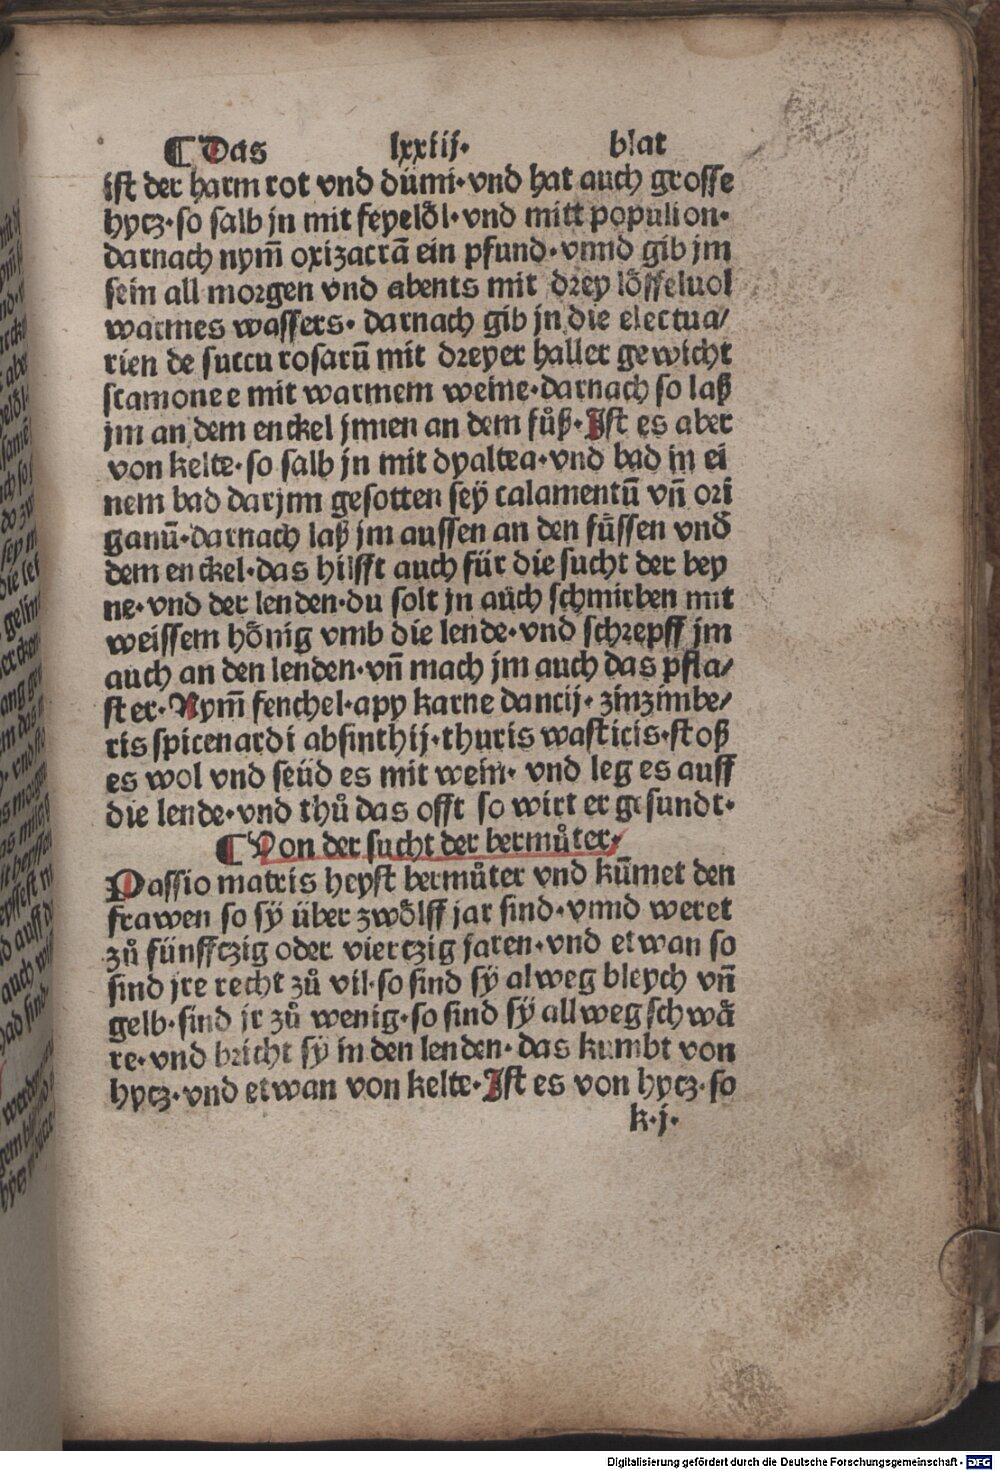 ¶ Das lxxiij· blat
ist der harm rot vnd dümi·vnd hat auch grosse
hycz·so salb jn mit feyelöl·vnd mitt populion·
darnach nym̄ oxizacrā ein pfund·vnnd gib jm
sein all morgen vnd abents mit drey löffeluol
warmes wassers· darnach gib jn die electua/
rien de succu rosarū mit dreyer haller gewicht
scamonee mit warmem weine·darnach so laß
jm an dem enckel jnnen an dem fůß·Ist es aber
von kelte·so salb jn mit dyaltea·vnd bad in ei
nem bad darjnn gesotten sey̋ calamentū vn̄ ori
ganū·darnach laß jm aussen an den füssen vnd
dem enckel·das hilfft auch für die sucht der bey
ne·vnd der lenden·du solt jn aüch schmirben mit
weissem hönig vmb die lende·vnd schrepff jm
auch an den lenden·vn̄ mach jm auch das pfla/
ster·Nym̄ fenchel·apy karne dancij· zinzimbe/
ris spicenardi absinthij·thuris wasticis·stoß
es wol vnd seüd es mit wein· vnd leg es auff
die lende·vnd thů das offt so wirt er gesundt·
¶ Von der sucht der bermůter·
Passio matris heyst bermůter vnd kūmet den
frawen so sy̋ über zwölff jar sind·vnnd weret
zů fünfftzig oder viertzig jaren·vnd etwan so
sind jre recht zů vil·so sind sy̋ alweg bleych vn̄
gelb·sind jr zů wenig·so sind sy̋ allweg schwä
re·vnd bricht sy̋ in den lenden· das kumbt von
hycz·vnd etwan von kelte·Ist es von hycz·so
k·j·
Digitalisierung gefördert durch die Deutsche Forschungsgemeinschaft - DFG